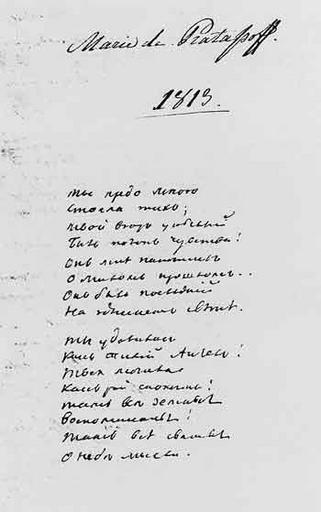 Marie de Pratasoff.
1813.
Ты предо мною
Стояла тихо;
Твой взоръ унылый
Былъ полонъ чувства!
Онъ мнѣ напомнилъ
О миломъ прошломъ..
Онъ былъ послѣдній
На здѣшнемъ свѣтѣ.
Ты удалилась
Какъ тихій Ангелъ!
Твоя могила
Какъ рай спокойна!
Тамъ всѣ земныя
Воспоминанья!
Тамъ всѣ святыя
О небѣ мысли.